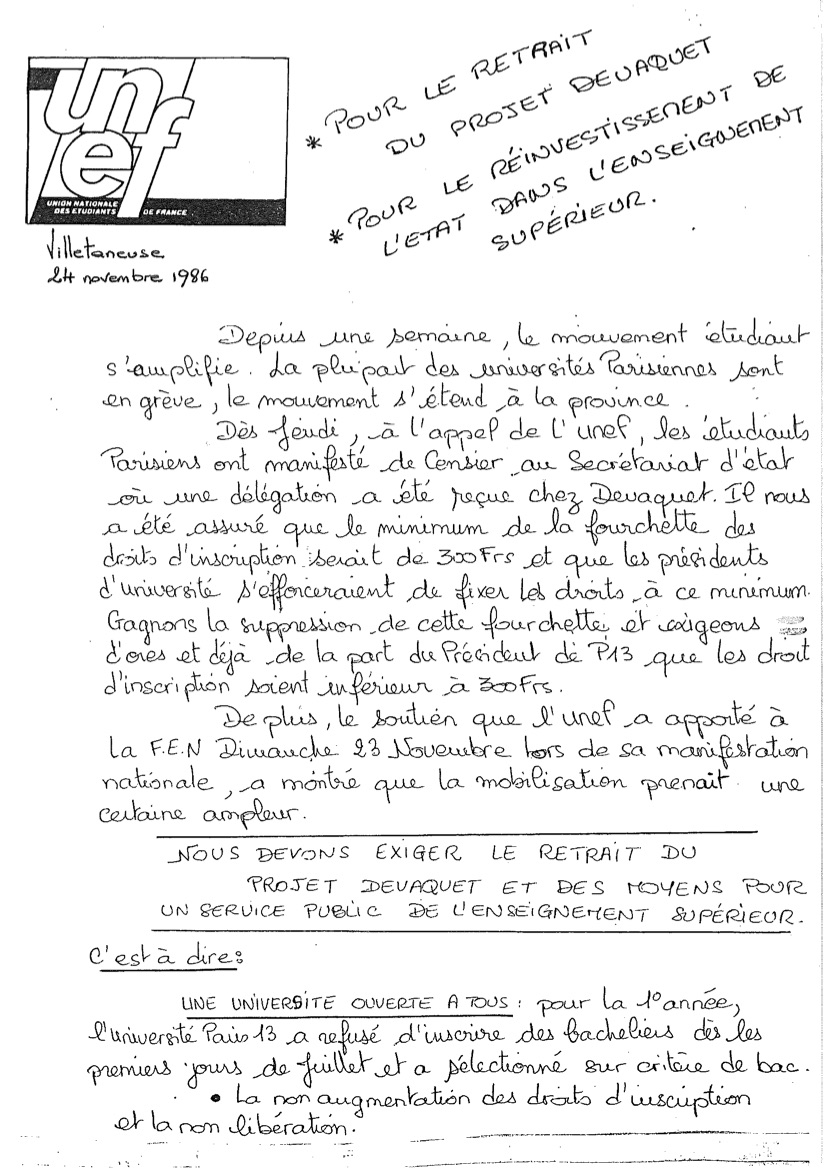 unef
UNION NATIONALE
DES ETUDIANTS DE FRANCE
* POUR LE RETRAIT
DU PROJET DEVAQUET
* POUR LE RÉINVESTISSEMENT DE
L'ETAT DANS L'ENSEIGNEMENT
SUPÉRIEUR.
Villetaneuse
24 novembre 1986
Depuis une semaine, le mouvement étudiant
s'amplifie. La plupart des universités Parisiennes sont
en grève, le mouvement s'étend à la province.
Dès Jeudi, à l'appel de l'unef, les étudiants
Parisiens ont manifesté de Censier au Secrétariat d'état
où une délégation a été reçue chez Devaquet. Il nous
a été assuré que le minimum de la fourchette des
droits d'inscription serait de 300Frs et que les présidents
d'université s'efforceraient de fixer les droits à ce minimum.
Gagnons la suppression de cette fourchette et exigeons
d'ores et déjà de la part du Président de P13 que les droit
d'inscription soient inférieur à 300Frs.
De plus, le soutien que l'unef a apporté à
la F.E.N Dimanche 23 Novembre lors de sa manifestation
nationale, a montré que la mobilisation prenait une
certaine ampleur.
NOUS DEVONS EXIGER LE RETRAIT DU
PROJET DEVAQUET ET DES MOYENS POUR
UN SERVICE PUBLIC DE L'ENSEIGNEMENT SUPÉRIEUR.
C'est à dire:
UNE UNIVERSITE OUVERTE A TOUS : pour la 1° année,
l'université Paris 13 a refusé d'inscrire des bacheliers dès les
premiers jours de juillet et a sélectionné sur critère de bac.
• La non augmentation des droits d'inscription
et la non libération.